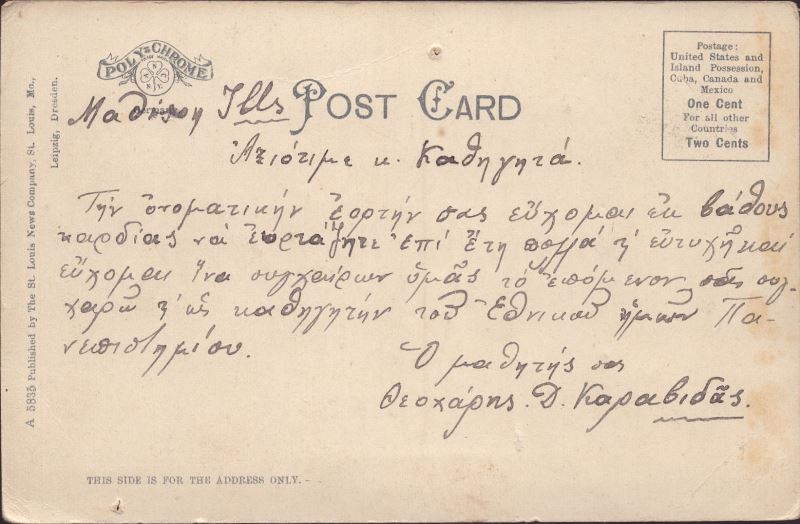 POLY-CHROME
Germany
POST CARD
Postage:
United States and
Island Possession,
Cuba, Canada and
Mexico
One Cent
For all other
Countries
Two Cents
A 5835 Published by The St. Louis News Company, St. Louis, Mo.,
Leipzig, Dresden.
Μαδίσον Ills
Ἀξιότιμε κ. Καθηγητά.
Τὴν ὀνοματικήν ἑορτήν σας εὔχομαι ἐκ βάθους
καρδίας νὰ ἑορτάζητε ἐπί ἔτη πολλά κ' εὐτυχῆ καί
εὔχομαι ἵνα συγχαίρων ὑμᾶς τὸ ἑπόμενον σᾶς συγ-
χαρῶ κ' ὡς καθηγητήν τοῦ Ἐθνικοῦ ἡμῶν Πα-
νεπιστημίου.
Ὁ μαθητής σας
Θεοχάρης Δ. Καραβιδᾶς.
THIS SIDE IS FOR THE ADDRESS ONLY.